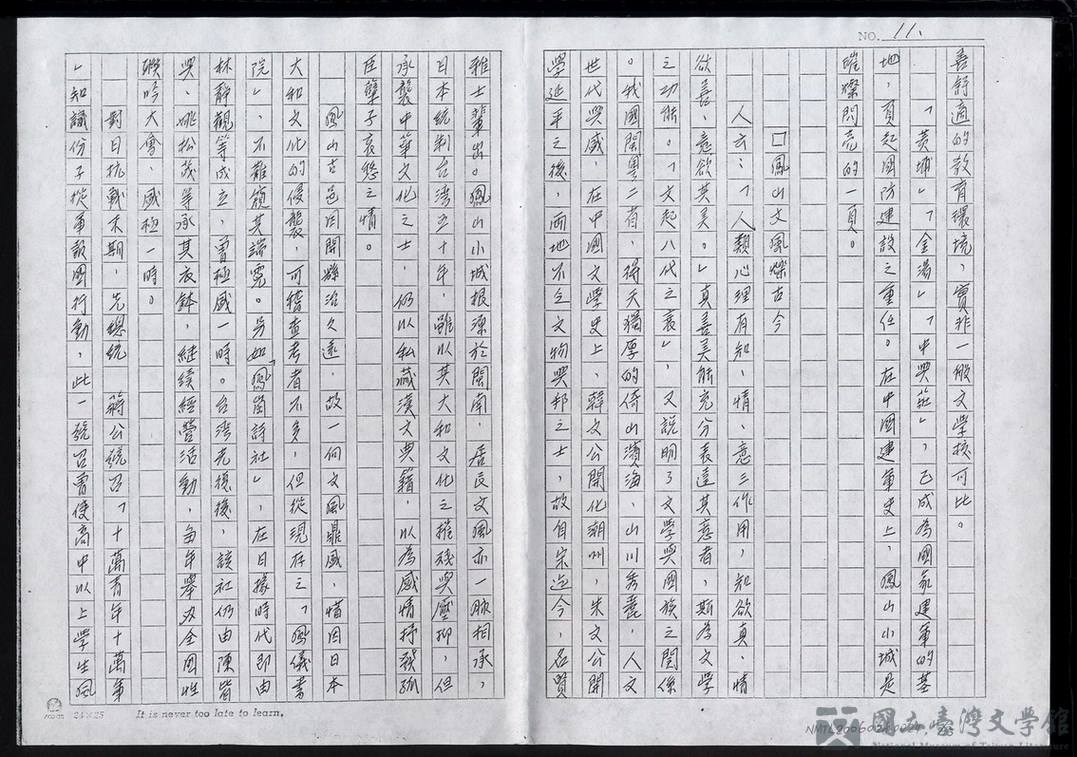 NO. 11.
善舒適的教育環境，實非一般文學校可比。
「黃埔」「金湯」「中興莊」，已成為國家建軍的基
地，肩起國防建設之重任。在中國建軍史上，鳳山小城是
璀燦閃亮的一頁。
□鳳山文風燦古今
人云：「人類心理有知、情、意三作用，知欲真、情
欲善、意欲其美。」真善美能充分表達其意者，斯為文學
之功能。「文起八代之衰」，又說明了文學與國族之關係
。我國閩粵二省，得天獨厚的倚山濱海，山川秀麗，人文
世代興盛，在中國文學史上，韓文公開化潮州，朱文公開
學延平之後，兩地不乏文物興邦之士，故自宋迄今，名賢
雅士輩出。鳳山小城根源於閩南，居民文風亦一脈相承，
日本統制台湾五十年，雖以其大和文化之摧残與壓抑，但
承襲中華文化之士，仍以私藏漢文典籍，以為感情抒發孤
臣孽子哀愁之情。
鳳山古邑因開縣治久遠，故一向文風鼎盛，惜因日本
大和文化的侵襲，可稽查考者不多，但從現存之「鳳儀書
院」，不難窺其端霓。另如「鳳崗詩社」，在日據時代即由
林靜觀等成立，曾極盛一時。台湾光復後，該社仍由陳皆
興、姚松茂等承其衣鉢，継續經營活動，每年舉办全國性
聯吟大會，盛極一時。
對日抗戰末期，先總統　蔣公號召「十萬青年十萬軍
」知識份子從軍報國行動，此一號召曾使高中以上學生風
24×25 It is never too late to learn.
國立臺灣文學館
National Museum of Taiwan Literature